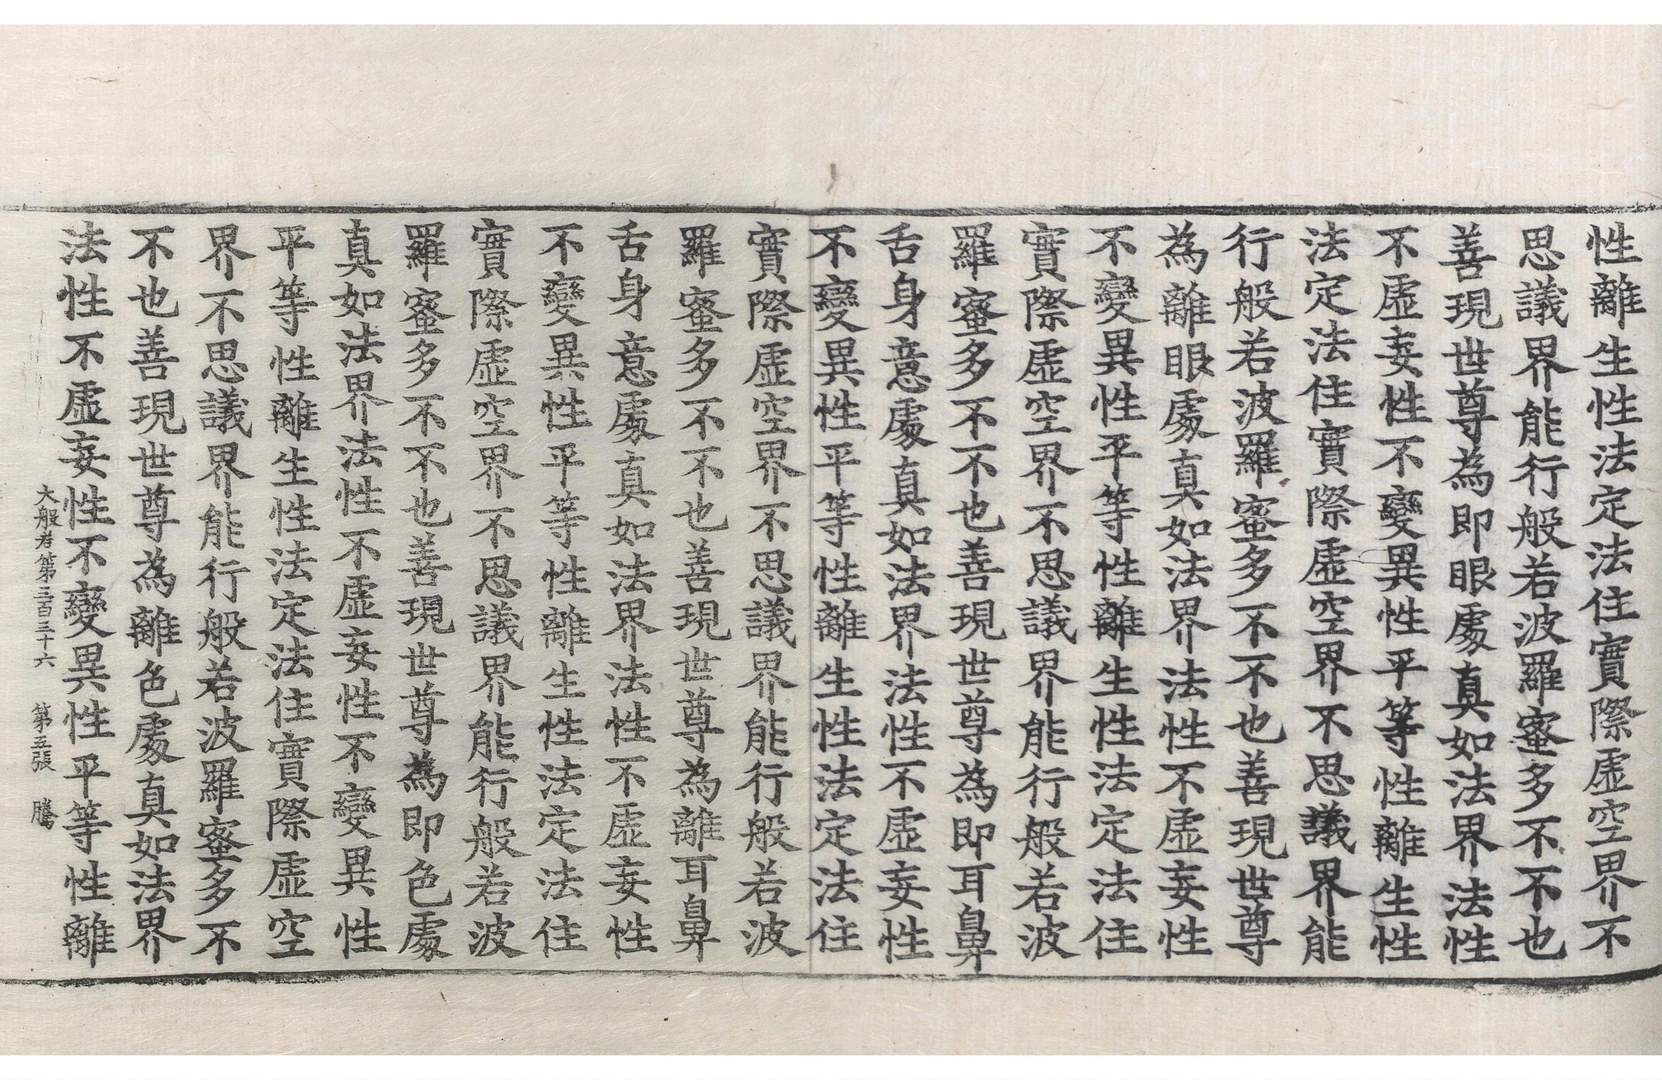 性離生性法定法住實際虛空界不
思議界能行般若波羅蜜多不不也
善現世尊為即眼處真如法界法性
不虛妄性不變異性平等性離生性
法定法住實際虛空界不思議界能
行般若波羅蜜多不不也善現世尊
為離眼處真如法界法性不虛妄性
不變異性平等性離生性法定法住
實際虛空界不思議界能行般若波
羅蜜多不不也善現世尊為即耳鼻
舌身意處真如法界法性不虛妄性
不變異性平等性離生性法定法住
實際虛空界不思議界能行般若波
羅蜜多不不也善現世尊為離耳鼻
舌身意處真如法界法性不虛妄性
不變異性平等性離生性法定法住
實際虛空界不思議界能行般若波
羅蜜多不不也善現世尊為即色處
真如法界法性不虛妄性不變異性
平等性離生性法定法住實際虛空
界不思議界能行般若波羅蜜多不
不也善現世尊為離色處真如法界
法性不虛妄性不變異性平等性離
大般若第三百三十六 第五張 騰